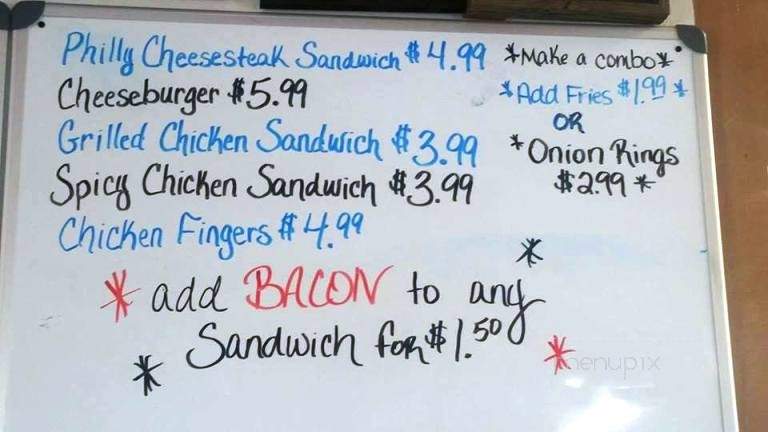 Philly Cheesesteak Sandwich $4.99
Cheeseburger $5.99
Grilled Chicken Sandwich $3.99
Spicy Chicken Sandwich $3.99
Chicken Fingers $4.99
*Make a combo*
*Add Fries $1.99*
OR
*Onion Rings
$2.99*
* add BACON to any *
* Sandwich for $1.50 *
menupix